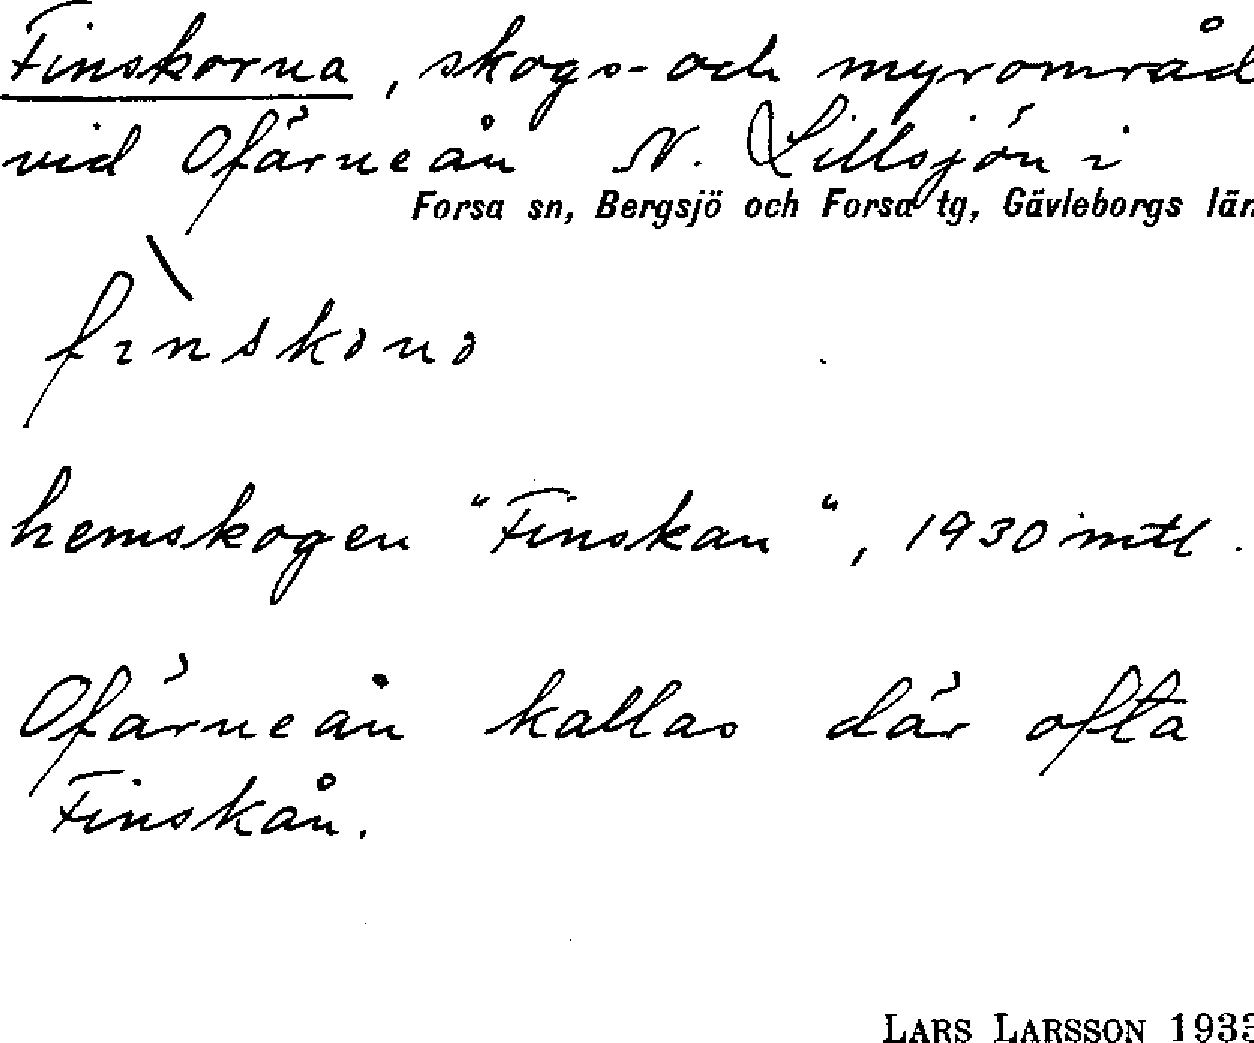 Finskorna, skogs- och myrområd
vid Ofärneån N. Lillsjön i
Forsa sn, Bergsjö och Forsa tg, Gävleborgs län
hemskogen "Finskan", 1930 mtl.
Ofärneån kallas där ofta
Finskån.
LARS LARSSON 193